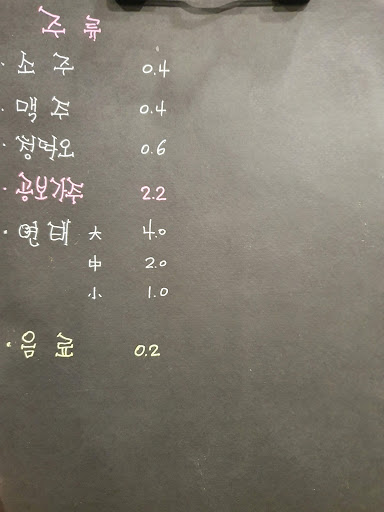 주 류
· 소 주 0.4
· 맥 주 0.4
· 청먹오 0.6
· 공보가주 2.2
· 연태 大 4.0
中 2.0
小 1.0
· 음 료 0.2